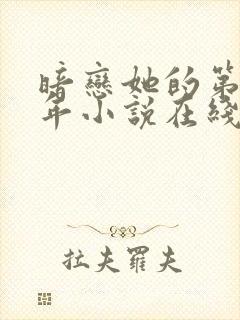 暗戀她的第
年小說在綫
拉夫羅夫